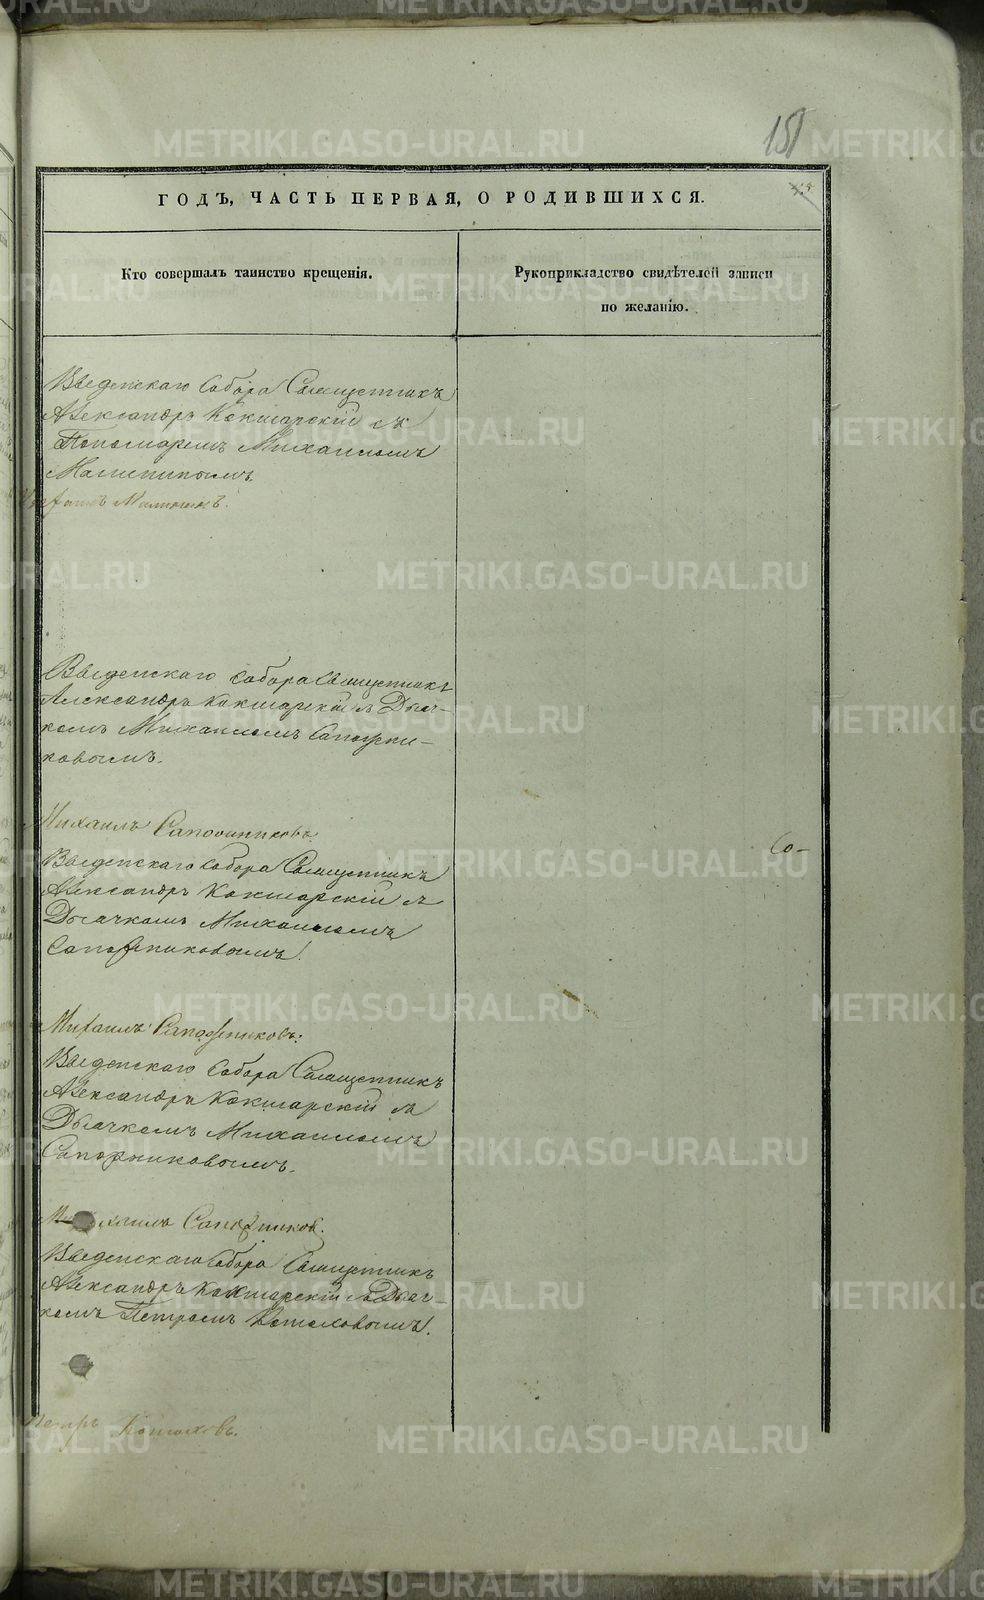 METRIKI.GASO-URAL.RU
151
ГОДЪ, ЧАСТЬ ПЕРВАЯ, О РОДИВШИХСЯ.
Кто совершалъ таинство крещенія.
Рукоприкладство свидѣтелей записи
по желанію.
Введенскаго Собора Священникъ
Александръ Кокшарскій съ
Пономаремъ Михаиломъ
Малининымъ.
Малининъ.
Введенскаго Собора Священникъ
Александръ Кокшарскій съ Дьяч-
комъ Михаиломъ Сапожни-
ковымъ.
Михаилъ Сапожниковъ.
Введенскаго Собора Священникъ
Александръ Кокшарскій съ
Дьячкомъ Михаиломъ
Сапожниковымъ.
Со-
Михаилъ Сапожниковъ.
Введенскаго Собора Священникъ
Александръ Кокшарскій съ
Дьячкомъ Михаиломъ
Сапожниковымъ.
Михаилъ Сапожниковъ.
Введенскаго Собора Священникъ
Александръ Кокшарскій съ Дьяч-
комъ Петромъ
Петръ